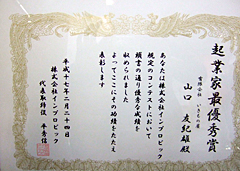 起業家最優秀賞
有限会社 いきもの屋
山口 友紀雄殿
あなたは株式会社インプロビック
規定のコンテストにおいて
頭書の通り優秀な成績を
収められました
よってここにその功績をたたえ
表彰します
平成十七年二月二十四日
株式会社インプロビック
代表取締役 平秀信